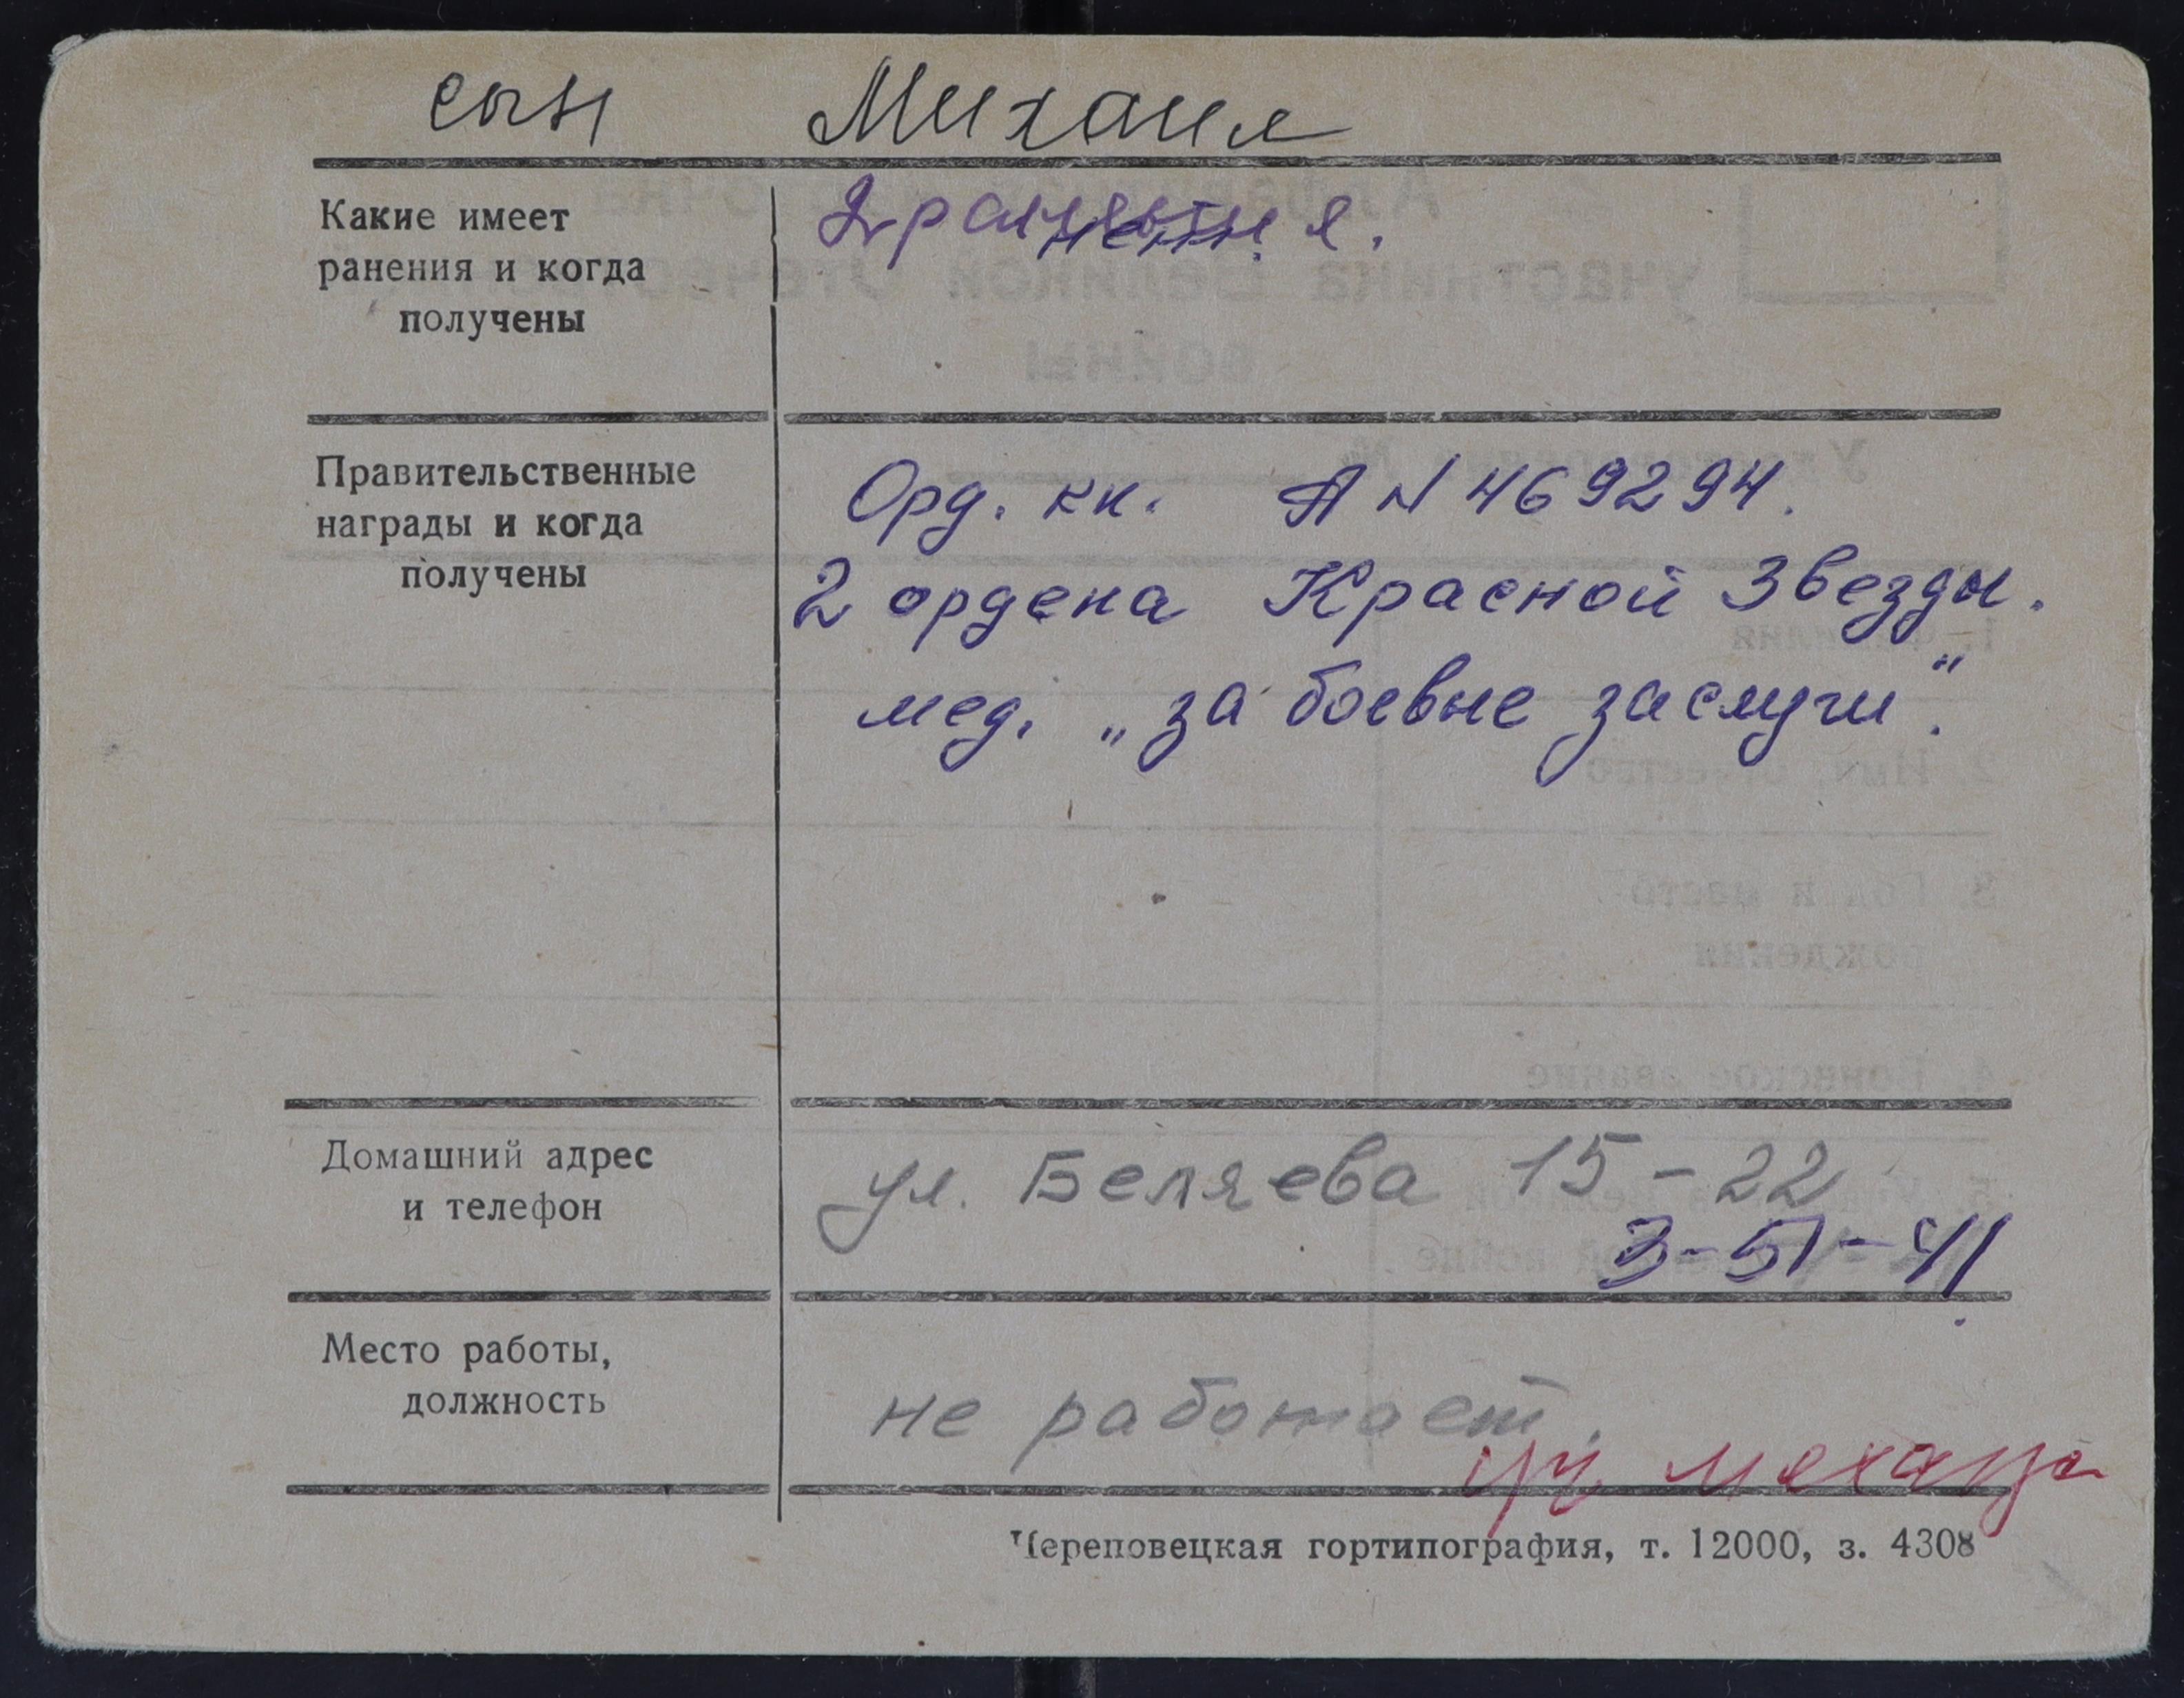 сын Михаил
Какие имеет
ранения и когда
получены
2 ранения.
Правительственные
награды и когда
получены
Орд. кн. А N 469294.
2 ордена Красной Звезды.
мед. „за боевые заслуги“.
Домашний адрес
и телефон
ул. Беляева 15-22
3-51-41
Место работы,
должность
не работает.
Череповецкая гортипография, т. 12000, з. 4308